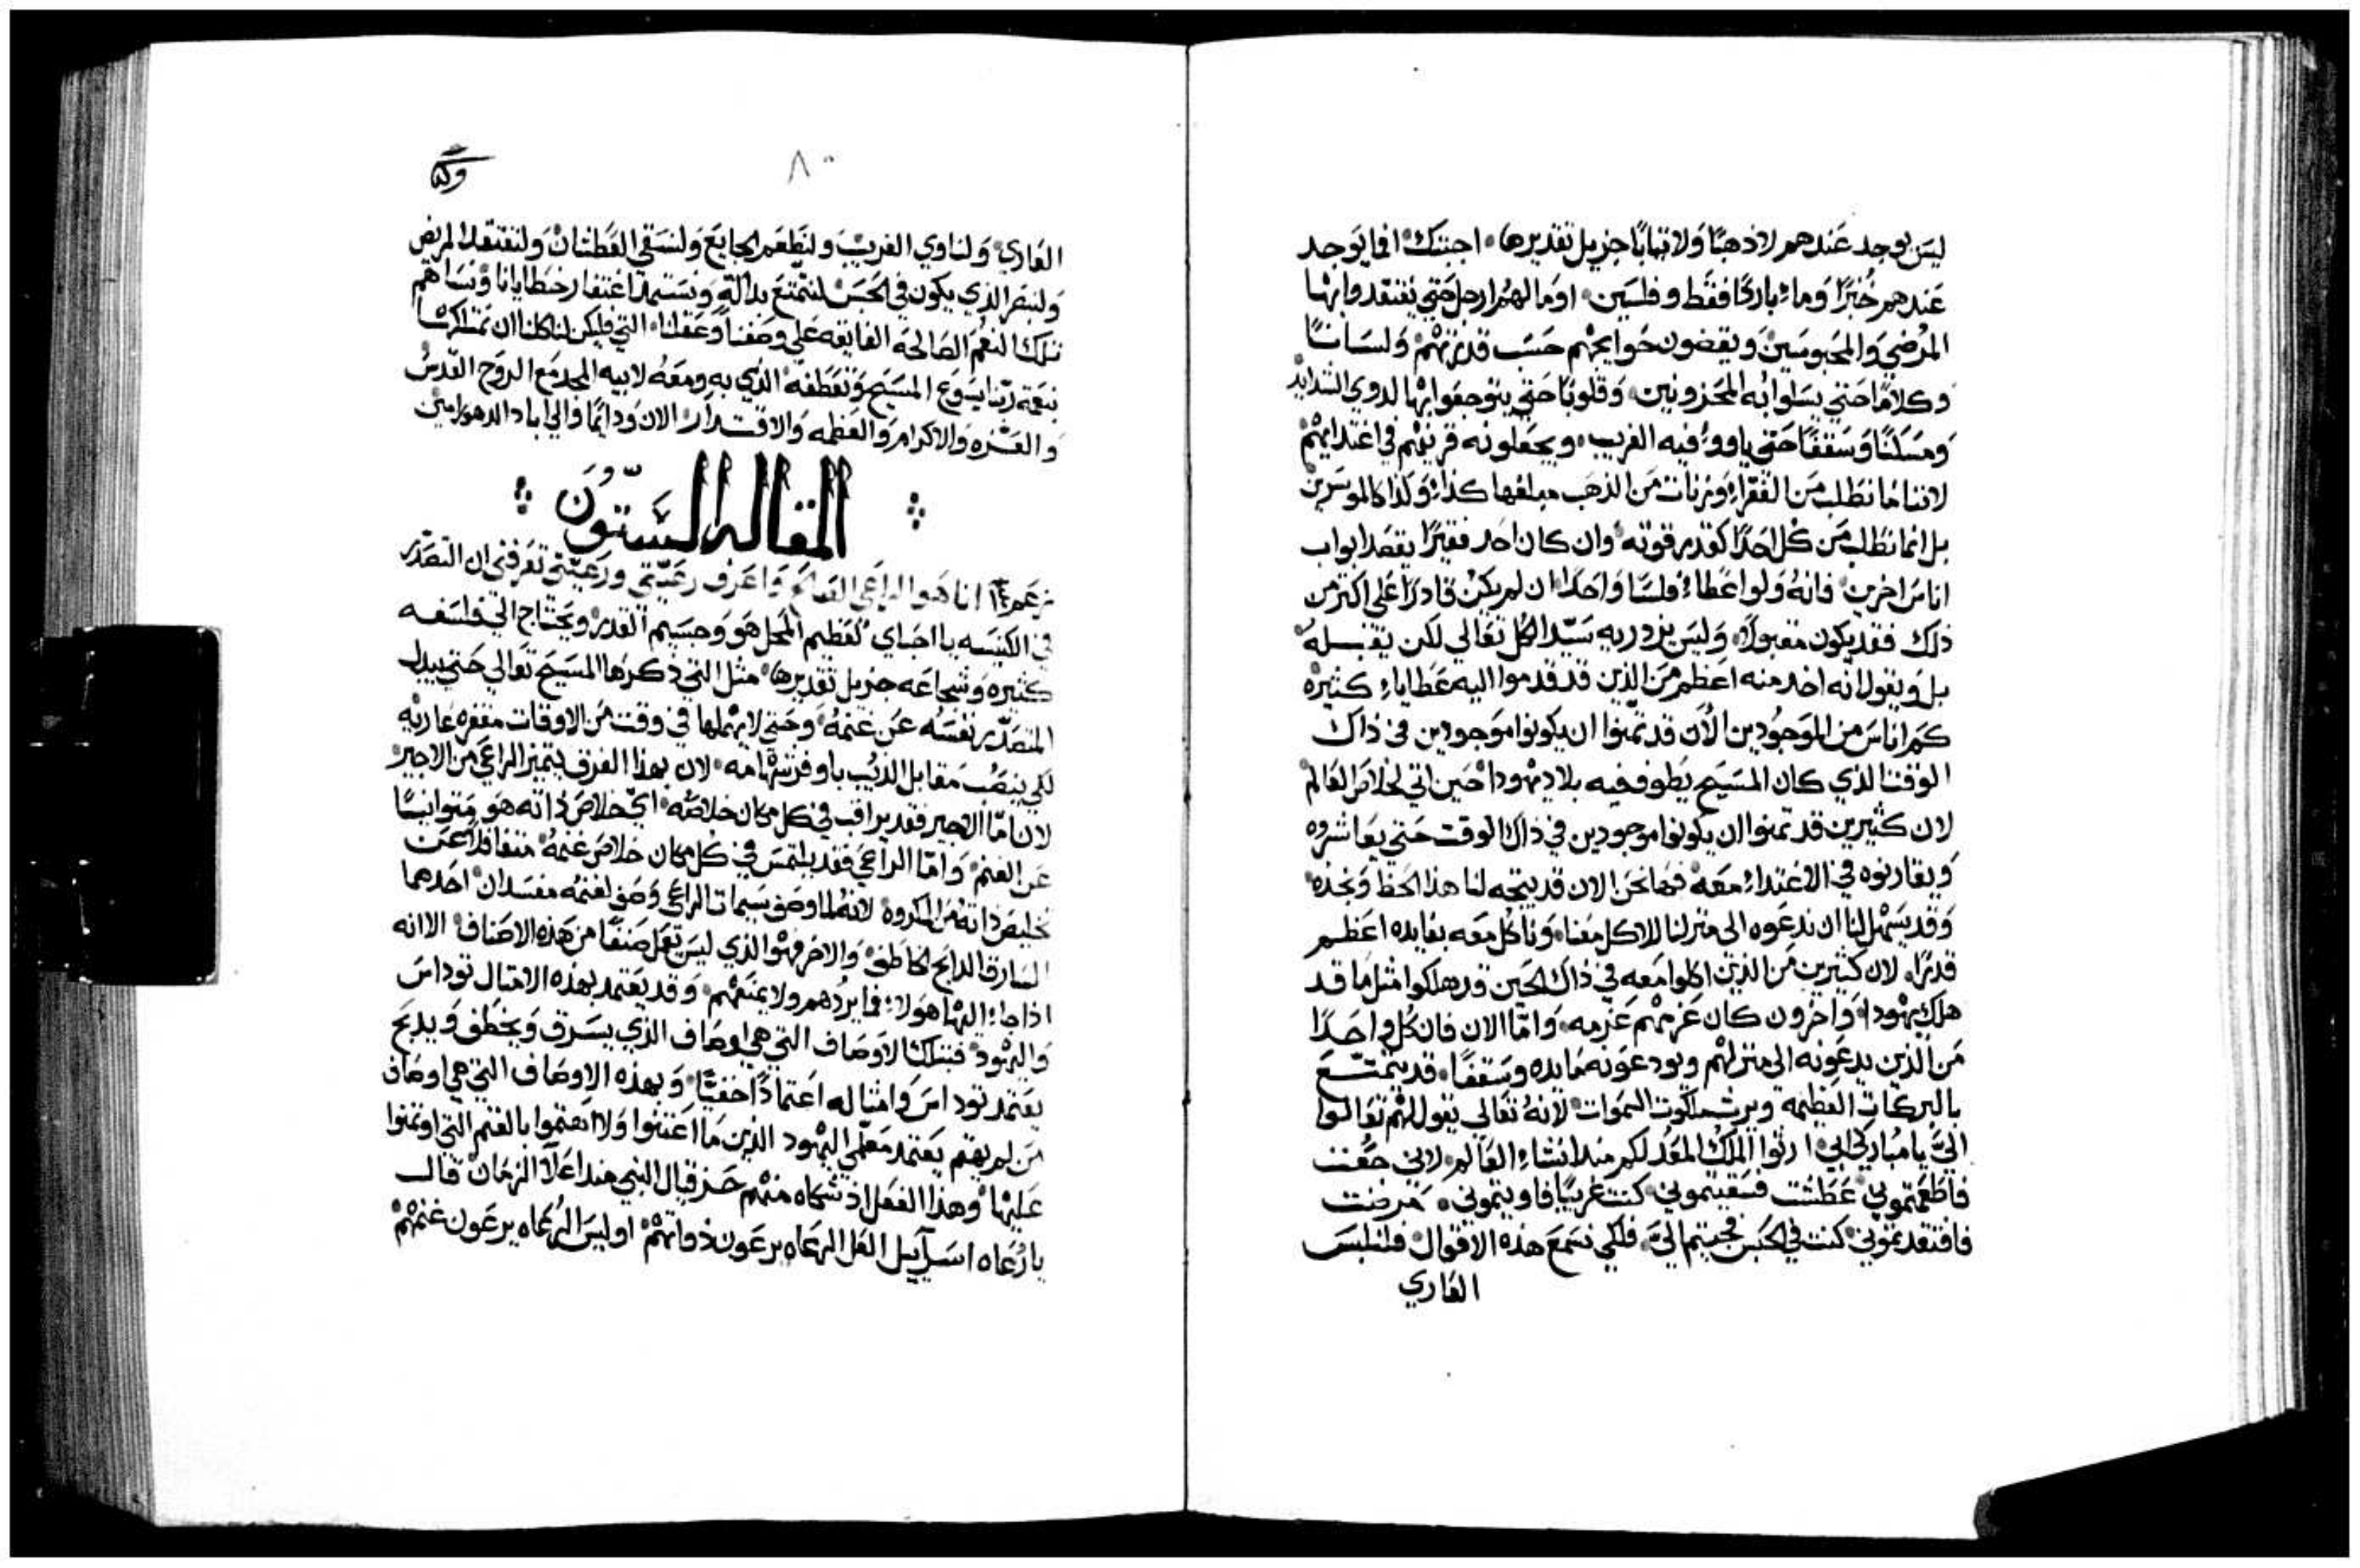 ليس يوجد عندهم لا ذهبًا ولا ثيابًا جزيل تقديرها، اجبتك افما يوجد
عندهم خبزًا وماءً باردًا فقط وفلسين، اوما لهم ارجل حتي يفتقدوا بها
المرضي والمحبوسين ويقضون حوايجهم حسب قدرتهم ولسانًا
وكلامًا حتي يسلوا به المحزونين وقلوبًا حتي يتوجعوا بها لدوي الشدايد
ومسكنًا وسقفًا حتي ياووا فيه الغريب، ويجعلونه قرينهم في اغتدايهم
لاننا ما نطلب من الفقراء وزنات من الذهب مبلغها كذا وكذا كالموسرين
بل انما نطلب من كل احدًا كقدر قوته وان كان احد فقيرًا يقصد ابواب
اناس اخرين فانه ولو اعطاء فلسًا واحدًا ان لم يكن قادرًا على اكتر من
ذلك فقد يكون مقبولًا، وليس يزدريه سيد الكل تعالي لكن يقبله
بل ويقول انه اخد منه اعظم من الذين قد قدموا اليه عطاياء كثيره
كم اناس من الموجودين الان قد تمنوا ان يكونوا موجودين في ذاك
الوقت الذي كان المسيح يطوف فيه بلاد يهودا حين اتي لخلاص العالم
لان كثيرين قد تمنوا ان يكونوا موجودين في ذاك الوقت حتي يعاشروه
ويقارنوه في الاغتداء معه فها نحن الان قد يتجه لنا هذا الحظ ونجده
وقد يسهل لنا ان ندعوه الى منزلنا للاكل معنا، وناكل معه بفايده اعظم
قدرًا، لان كثيرين من الذين اكلوا معه في ذاك الحين قد هلكوا مثل ما قد
هلك يهودا، واخرون كان عزمهم عزمه، واما الان فان كل واحدًا
من الذين يدعونه الى منزلهم ويودعونه مايده وسقفًا، قد يتمتع
بالبركات العظيمه ويرث ملكوت السموات لانه تعالي يقول لهم تعالوا
اليّ يا مباركي ابي ارثوا الملك المعد لكم منذ انشاء العالم لاني جعت
فاطعمتموني عطشت فسقيتموني كنت غريبًا فاويتموني، مرضت
فافتقدتموني كنت في الحبس فجيتم اليّ، فلكي نسمع هذه الاقوال فلنلبس
العاري
٨٠
العاري ولناوي الغريب ولنطعم الجايع ولنسقي العطشان ولنفتقد المريض
ولنبصر الذي يكون في الحبس لنتمتع بدالة ونستمد اغتفار خطايانا ونساهم
تلك النعم الصالحه الفايقه على وصفنا وعقلنا، التي فليكن لنا كلنا ان نمتلكها
بنعمة ربنا يسوع المسيح وتعطفه الذي به ومعه لابيه المجد مع الروح القدس
والعزه والاكرام والعظمه والاقتدار الان ودايمًا والي اباد الدهور امين
المقاله الستون
انا هو الراعي الصالح واعرف رعيتي ورعيتي تعرفني ان التصدر
في الكنيسه يا احباي لعظيم المحل هو وجسيم القدر ويحتاج الي فلسفه
كثيره وشجاعه جزيل تقديرها مثل التي ذكرها المسيح تعالي حتي يبدل
المتصدر نفسه عن غنمه وحتي لا يهملها في وقت من الاوقات مقفره عاريه
لكي ينصب مقابل الذيب باوفر شهامه، لان بهذا الفرق يتميز الراعي من الاجير
لان اما الاجير فقد يراقب في كل مكان خلاصه اي خلاص ذاته هو متوانيًا
عن الغنم واما الراعي فقد يلتمس في كل مكان خلاص غنمه متغافلًا عن
تخليص ذاته من المكروه لانه لما وصف سيمات الراعي وصف لغنمه مفسدان احدهما
السارق الدابح الخاطف والاخر فهو الذي ليس يفعل صنفًا من هذه الاصناف الا انه
اذا جاء اليها هولاء فما يردهم ولا يمنعهم، وقد يعتمد بهذه الامتال توداس
واليهود فبتلك الاوصاف التي هي اوصاف الذي يسرق ويخطف ويدبح
يعتمد توداس وامثاله اعتمادًا خفيًا، وبهذه الاوصاف التي هي اوصاف
من لم يهتم يعتمد معلمي اليهود الذين ما اعتنوا ولا اهتموا بالغنم التي اوتمنوا
عليها وهذا الفعل اذ شكاه منهم حزقيال النبي منذ اعلا الزمان قال
يا رعاه اسراييل العل الرعاه يرعون ذواتهم اوليس الرعاه يرعون غنمهم